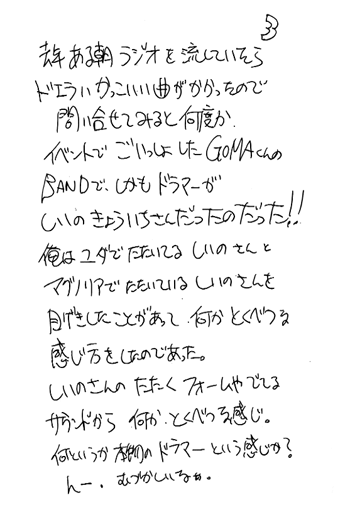 3
去年ある朝ラジオを流していたら
ドエラいかっこいい曲がかかったので
問い合せてみると何度か
イベントでごいっしょしたGOMAくんの
BANDで、しかもドラマーが
しいのきょういちさんだったのだった!!
俺はユダでたたいてるしいのさんと
マグノリアでたたいているしいのさんを
目げきしたことがあって何かとくべつな
感じ方をしたのであった。
しいのさんのたたくフォームやでてる
サウンドから何か、とくべつな感じ。
何というか本物のドラマーという感じか?
んー、むづかしいなぁ。